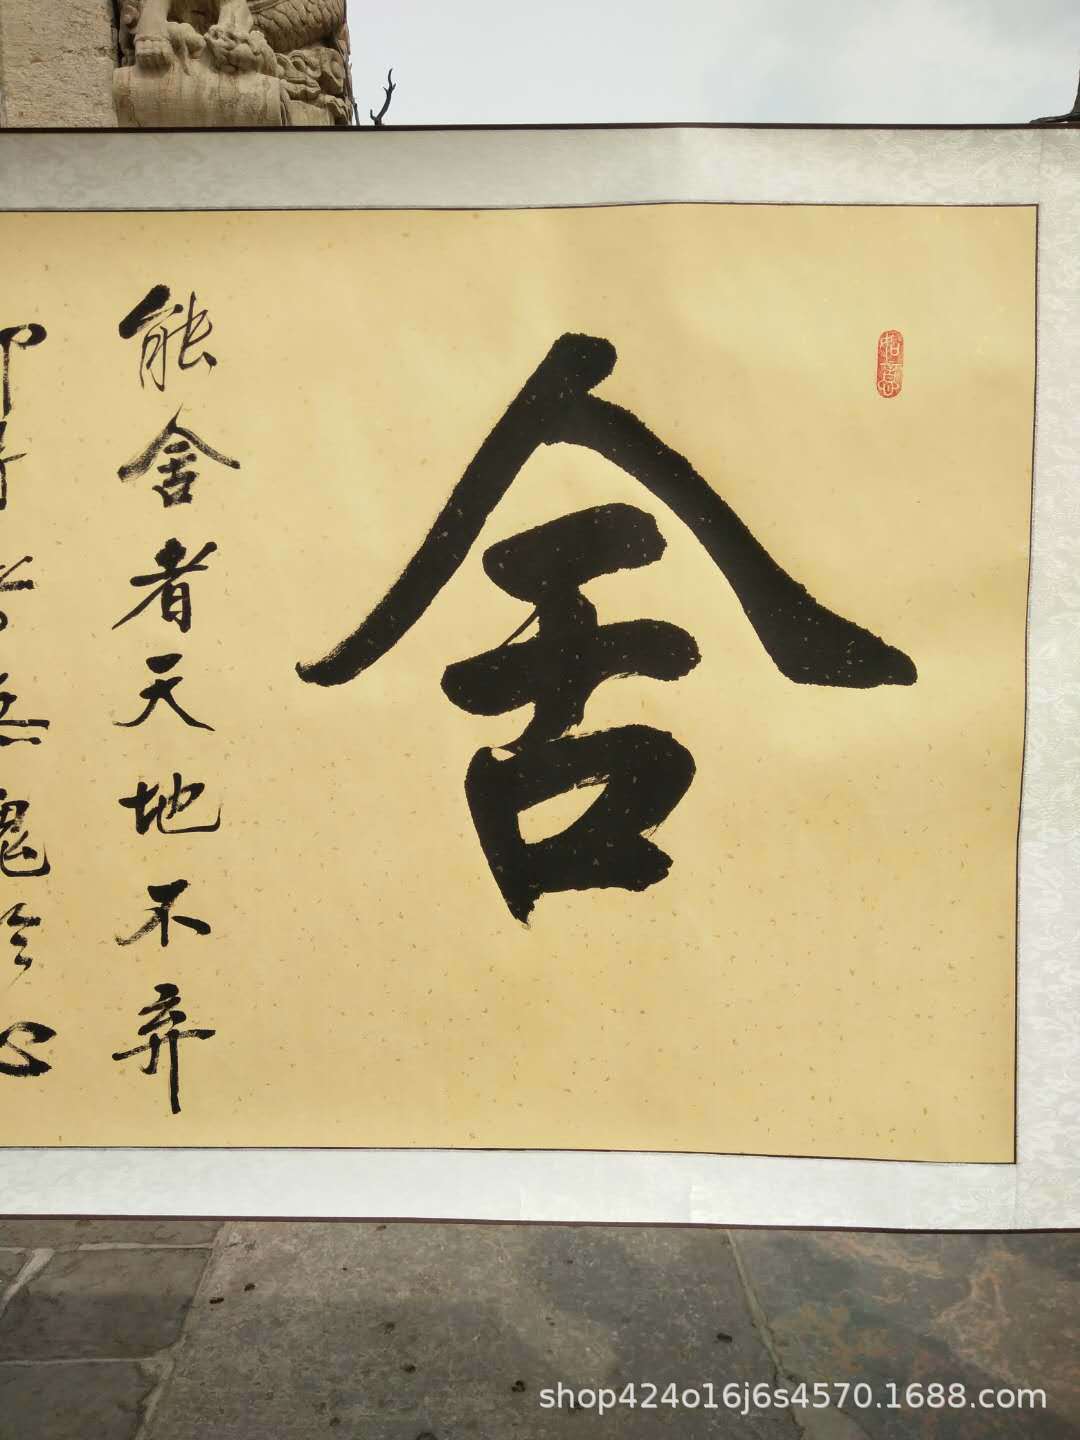 如意
舍
能舍者天地不弃
者無愧於心
shop424o16j6s4570.1688.com